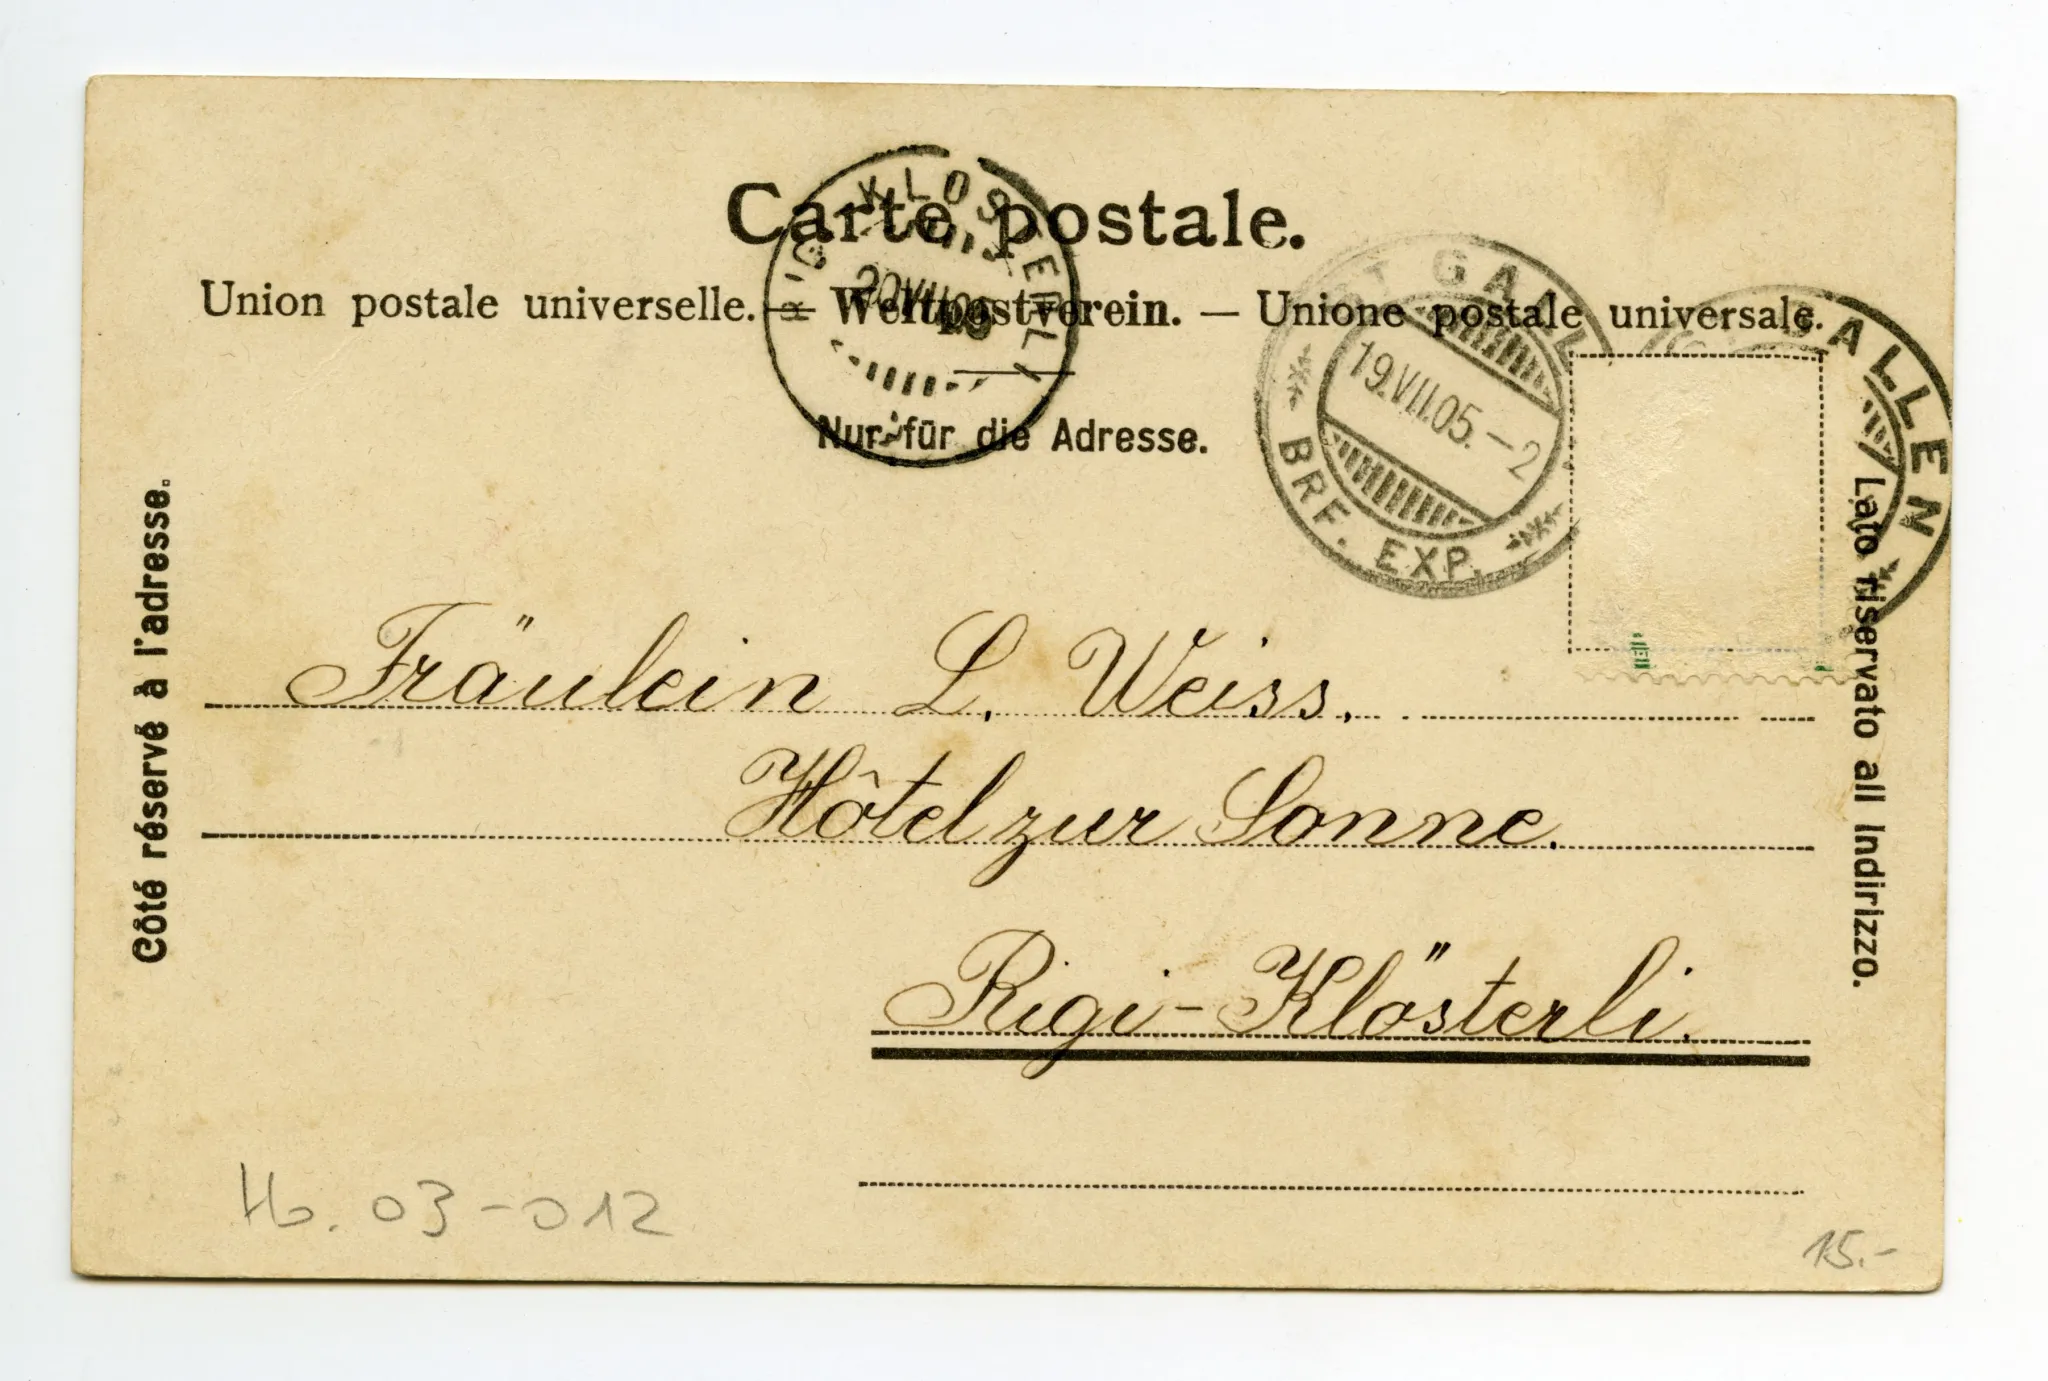 Carte postale.
Union postale universelle. — Weltpostverein. — Unione postale universale.
Nur für die Adresse.
RIGI KLOSTERLI
20 VII 05
ST GALLEN
19.VII.05.–2
BRF. EXP.
GALLEN
Côté réservé à l'adresse.
Lato riservato all Indirizzo.
Fräulein L. Weiss.
Hôtel zur Sonne.
Rigi-Klösterli.
Ho. 03-012
15.-